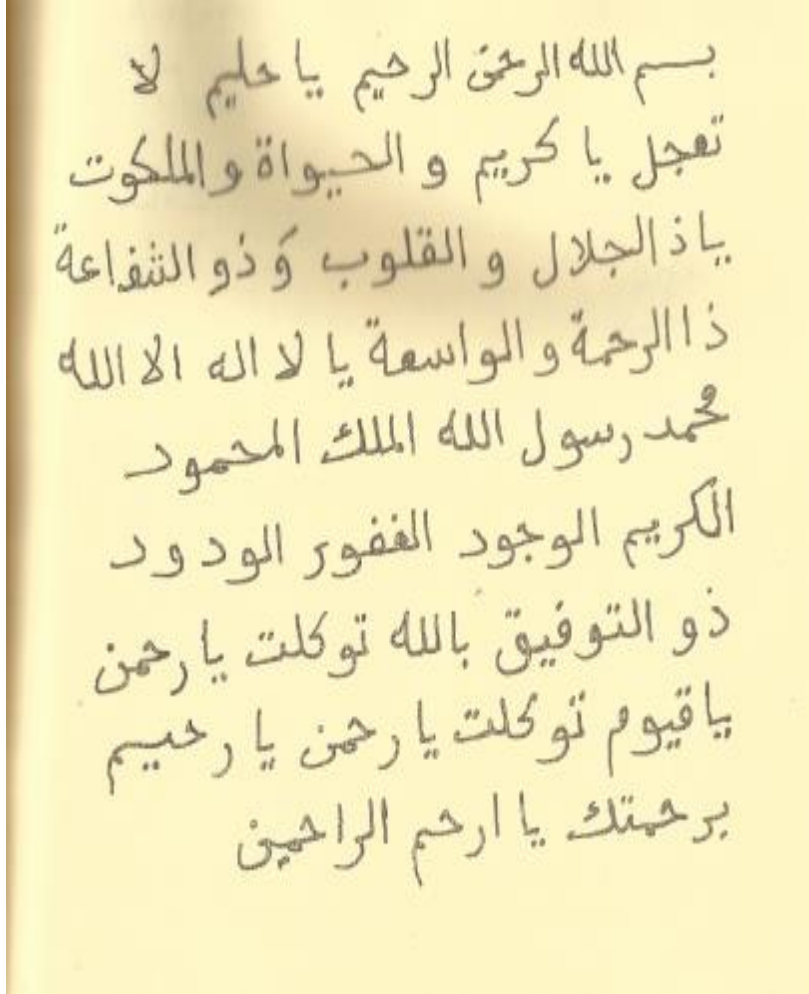 بسم الله الرحمن الرحيم يا حليم لا
تعجل يا كريم و الحيواة والملكوت
ياذالجلال والقلوب وَذو الشفاعة
ذاالرحمة والواسعة يا لا اله الا الله
محمد رسول الله الملك المحمود
الكريم الوجود الغفور الودود
ذو التوفيق بالله توكلت يا رحمن
ياقيوم توكلت يا رحمن يا رحيم
برحمتك يا ارحم الراحمين